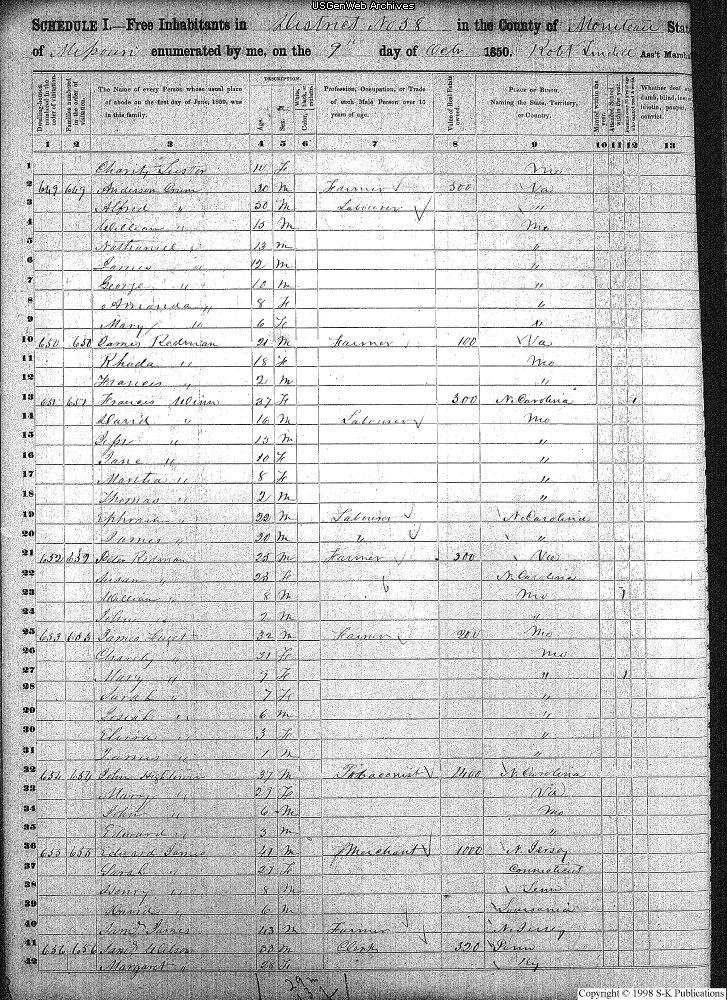 USGenWeb Archives
SCHEDULE I.—Free Inhabitants in District No 38 in the County of Moniteau State
of Missouri enumerated by me, on the 9th day of Octr 1850. Robt Ass't Marsha
Dwelling-houses numbered in the order of visitation. Families numbered in the order of visitation. The Name of every Person whose usual place of abode on the first day of June, 1850, was in this family. DESCRIPTION. Age. Sex. Color, White, black, or mulatto. Profession, Occupation, or Trade of each Male Person over 15 years of age. Value of Real Estate owned. PLACE OF BIRTH. Naming the State, Territory, or Country. Married within the year. Attended School within the year. Whether deaf and dumb, blind, insane, idiotic, pauper, or convict.
1 2 3 4 5 6 7 8 9 10 11 12 13
1 Charity 10 F Mo
2 649 649 Anderson 30 M Farmer 300 Va
3 Alfred " 30 M Labourer "
4 William " 15 M Mo
5 Nathaniel " 13 M "
6 James " 12 M "
7 George " 10 M "
8 Amanda " 8 F "
9 Mary " 6 F "
10 650 650 James Redman 21 M Farmer 100 Va
11 Rhoda " 18 F Mo
12 Francis " 2 M "
13 651 651 Francis Winn 37 F 300 N. Carolina 1
14 David " 16 M Labourer Mo
15 " 13 M "
16 Jane " 10 F "
17 Martha " 8 F "
18 Thomas " 2 M "
19 Ephraim " 22 M Labourer N. Carolina
20 James " 20 M " "
21 652 652 Redman 25 M Farmer 300 Va
22 Susan " 23 F N. Carolina
23 William " 8 M Mo 1
24 John " 2 M "
25 653 653 James 32 M Farmer 200 Mo
26 Charity " 31 F Mo
27 Mary " 9 F " 1
28 Sarah " 7 F "
29 Josiah " 6 M "
30 " 3 F "
31 James " 1 M "
32 654 654 John Hightower 37 M Tobaconist 1400 N. Carolina
33 Mary " 27 F Va
34 John " 6 M Mo
35 Edward " 3 M "
36 655 655 Edward James 41 M Merchant 1000 N. Jersey
37 Sarah " 27 F Connecticut
38 Henry " 8 M
39 David " 6 M Louisania
40 James 43 M Farmer N. Jersey
41 656 656 Wilson M Clerk 320
42 Margaret " 28 F Ky
Copyright © 1998 S-K Publications